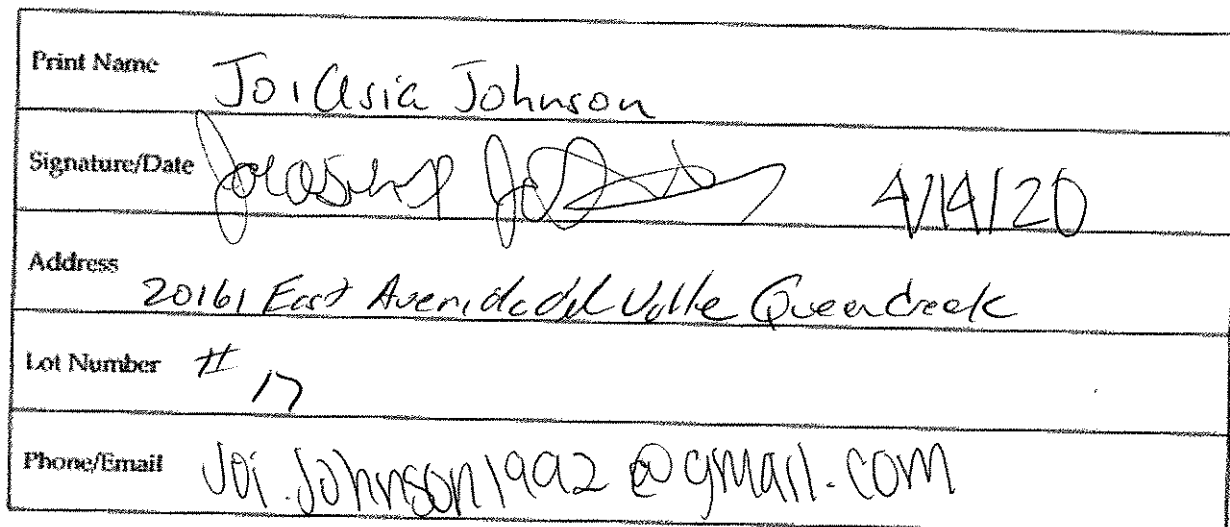 Print Name JoiAsia Johnson
Signature/Date 4/14/20
Address 20161 East Avenida del Valle Queen Creek
Lot Number # 17
Phone/Email Joi.Johnson1992@gmail.com